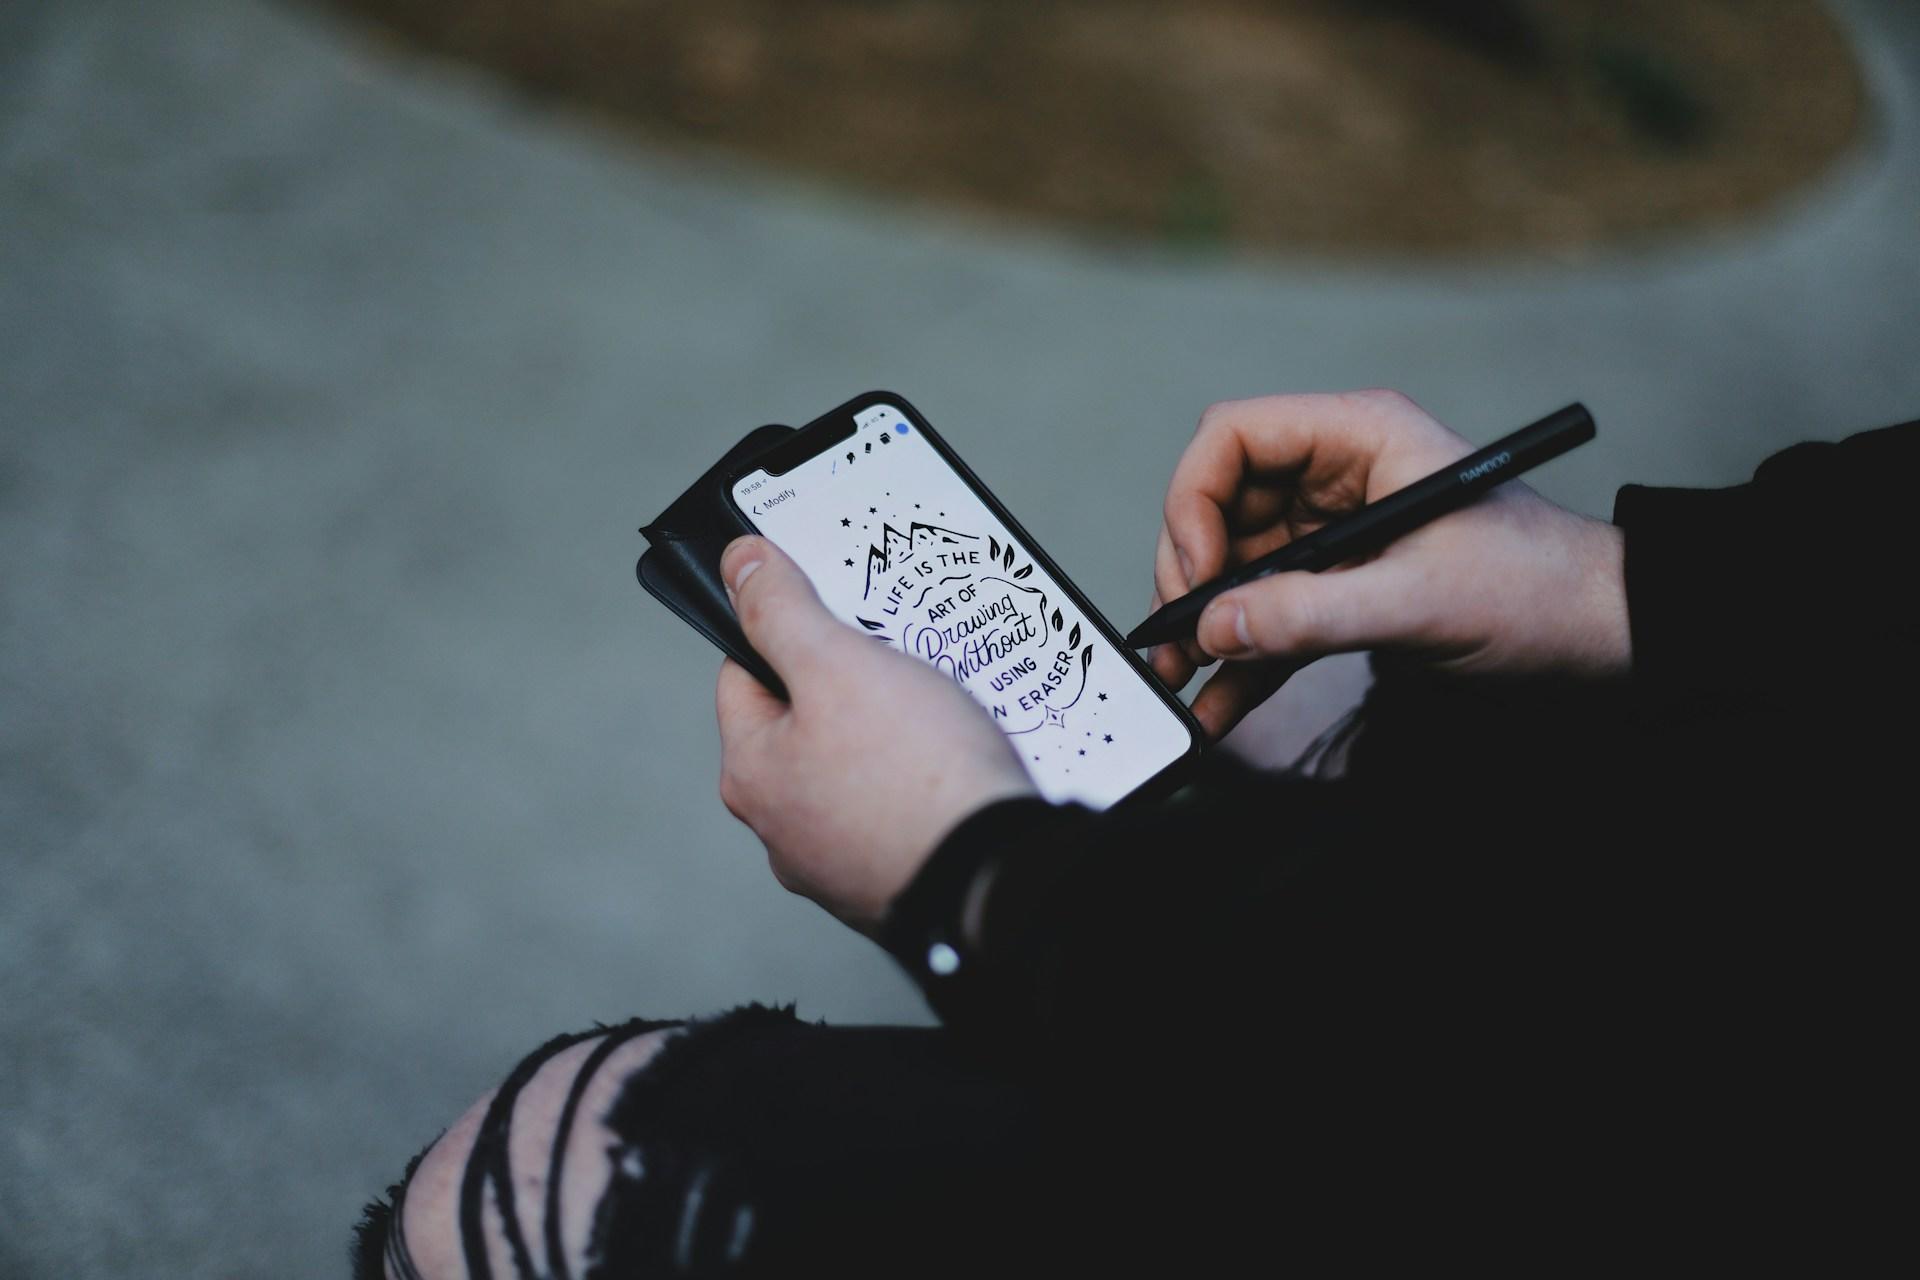 19:58
Modify
LIFE IS THE
ART OF
Drawing
Without
USING
ERASER
BAMBOO